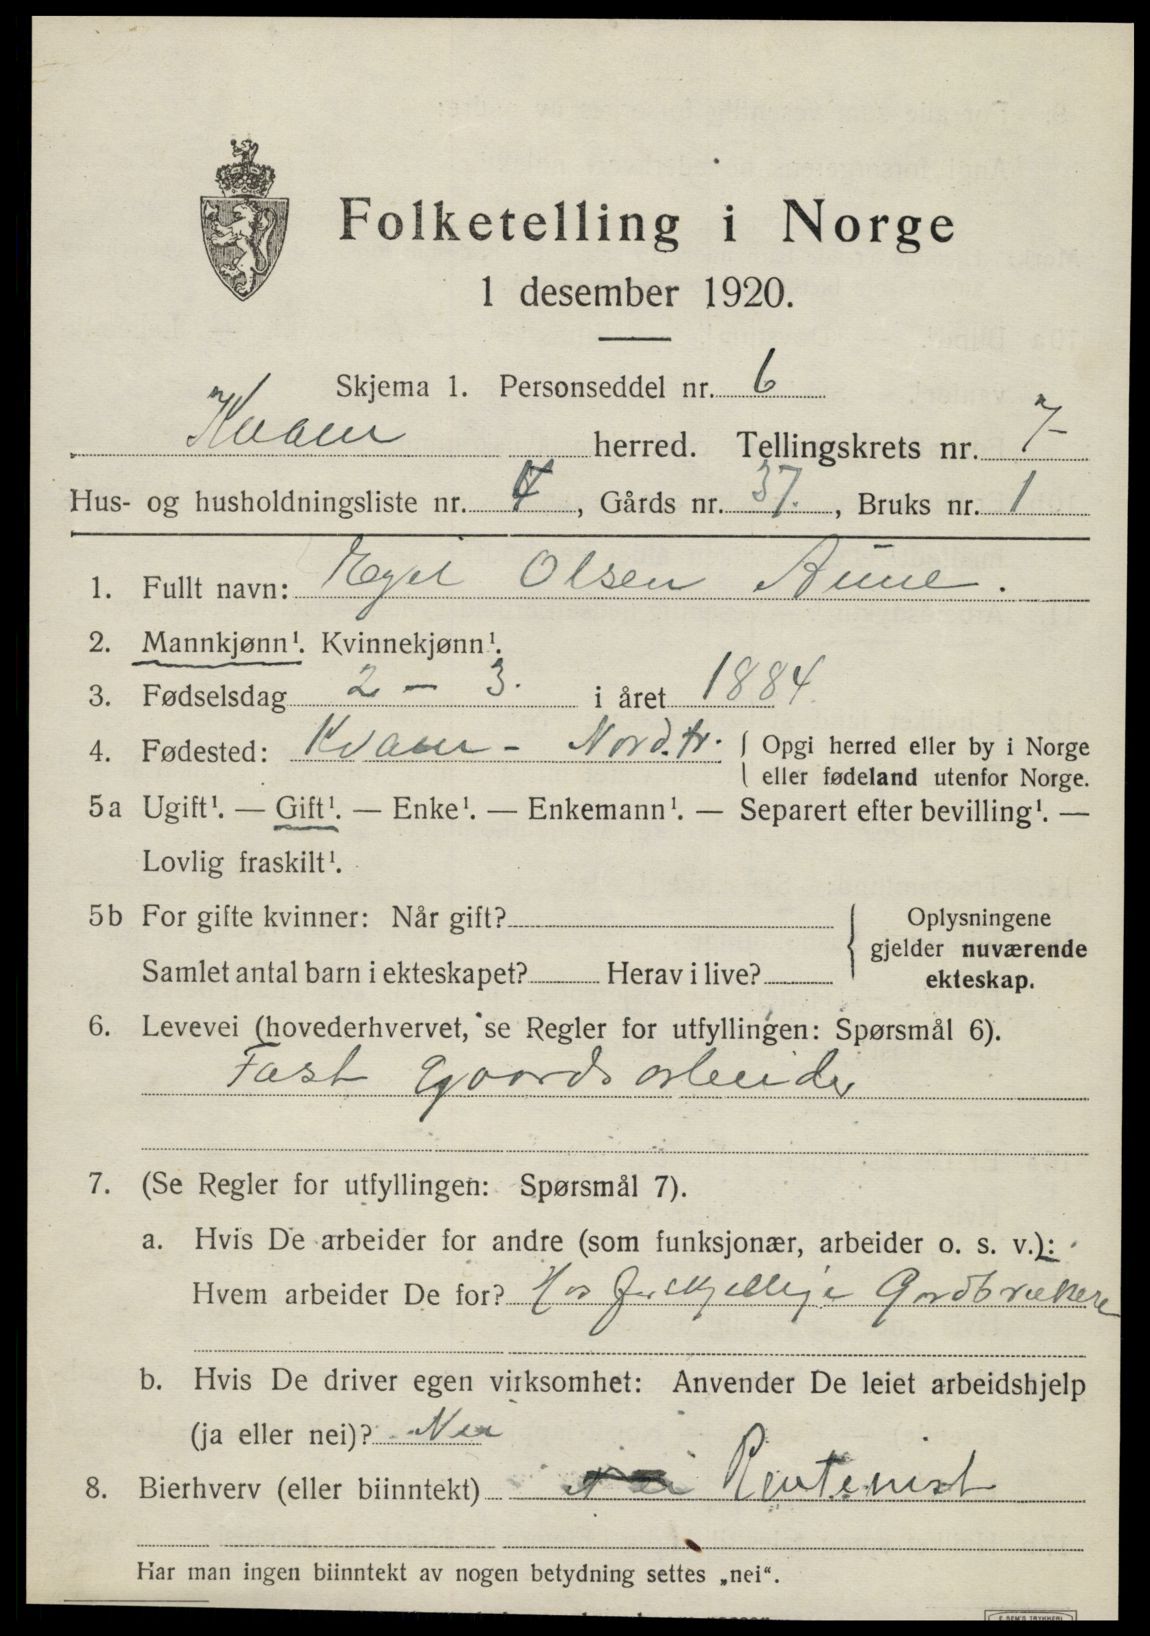 Folketelling i Norge
1 desember 1920.
Skjema 1. Personseddel nr. 6
Kvam herred. Tellingskrets nr. 7
Hus- og husholdningsliste nr. 4, Gårds nr. 37., Bruks nr. 1
1. Fullt navn: Egil Olsen Aune.
2. Mannkjønn¹. Kvinnekjønn¹.
3. Fødselsdag 2 – 3. i året 1884
4. Fødested: Kvam - Nord.tr. { Opgi herred eller by i Norge
eller fødeland utenfor Norge.
5a Ugift¹. — Gift¹. — Enke¹. — Enkemann¹. — Separert efter bevilling¹. —
Lovlig fraskilt¹.
5b For gifte kvinner: Når gift? { Oplysningene
gjelder nuværende
Samlet antal barn i ekteskapet? Herav i live? ekteskap.
6. Levevei (hovederhvervet, se Regler for utfyllingen: Spørsmål 6).
Fast Gaardsarbeider
7. (Se Regler for utfyllingen: Spørsmål 7).
a. Hvis De arbeider for andre (som funksjonær, arbeider o. s. v.):
Hvem arbeider De for? Hos forskjellige Gardbrukere
b. Hvis De driver egen virksomhet: Anvender De leiet arbeidshjelp
(ja eller nei)? Nei
8. Bierhverv (eller biinntekt) Rentenist
Har man ingen biinntekt av nogen betydning settes „nei“.